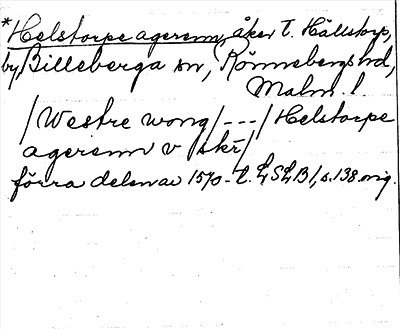 *Helstorpe agerenn, åker t. Hällstorp,
by, Billeberga sn, Rönnebergs hd,
Malm. l.
/Westre wong/ - - - / Helstorpe
agerenn v skr/
förra delen av 1570-t. LSLB1, s. 138 orig.